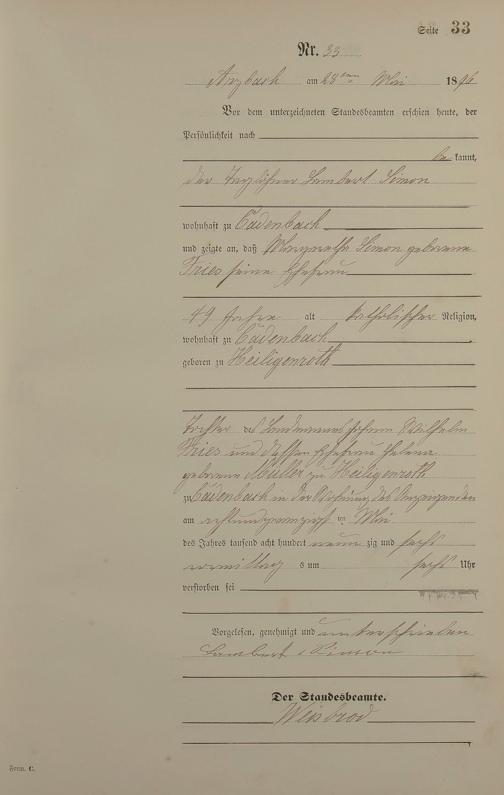 Seite 33
Nr. 33
Arzbach am 28ten Mai 1896
Vor dem unterzeichneten Standesbeamten erschien heute, der
Persönlichkeit nach
be kannt,
der Taglöhner Lambert Simon
wohnhaft zu Cadenbach
und zeigte an, daß Margarethe Simon geborene
Fries seine Ehefrau
49 Jahre alt katholischer Religion,
wohnhaft zu Cadenbach
geboren zu Heiligenroth
Tochter des Wilhelm
Fries und dessen Ehefrau Helena
geborene Müller zu Heiligenroth
zu Cadenbach in der Wohnung des Anzeigenden
am achtundzwanzigsten Mai
des Jahres tausend acht hundert neun zig und sechs
vormittag s um sechs Uhr
verstorben sei
Vorgelesen, genehmigt und unterschrieben
Lambert Simon
Der Standesbeamte.
Weisbrod
Form. C.